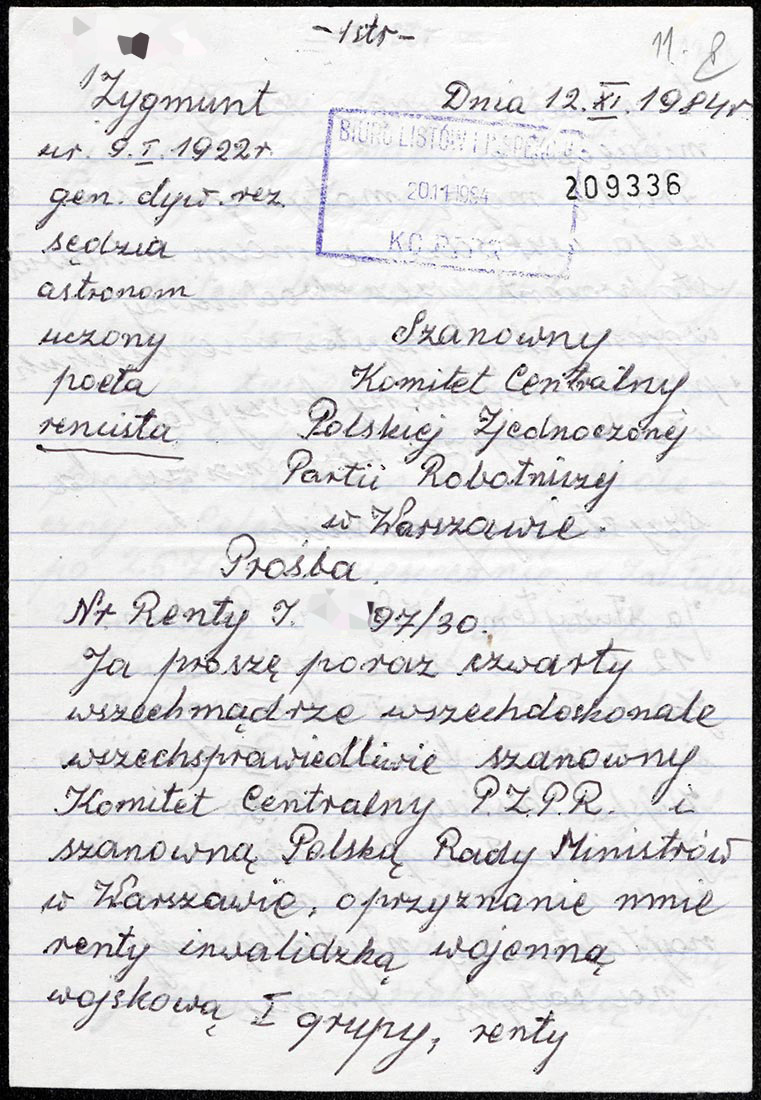 -1str-
11-8
Zygmunt
Dnia 12.XI.1984r
ur. 9.I.1922r.
BIURO LISTÓW I INSPEKCJI
20.11.1984
KC PZPR
209336
gen. dyw. rez.
sędzia
astronom
uczony
poeta
rencista
Szanowny
Komitet Centralny
Polskiej Zjednoczonej
Partii Robotniczej
w Warszawie.
Prośba.
Nr Renty I. 97/30.
Ja proszę poraz czwarty
wszechmądrze wszechdoskonale
wszechsprawiedliwie szanowny
Komitet Centralny P.Z.P.R. i
szanowną Polską Rady Ministrów
w Warszawie, oprzyznanie mnie
renty inwalidzką wojenną
wojskową I grupy, renty